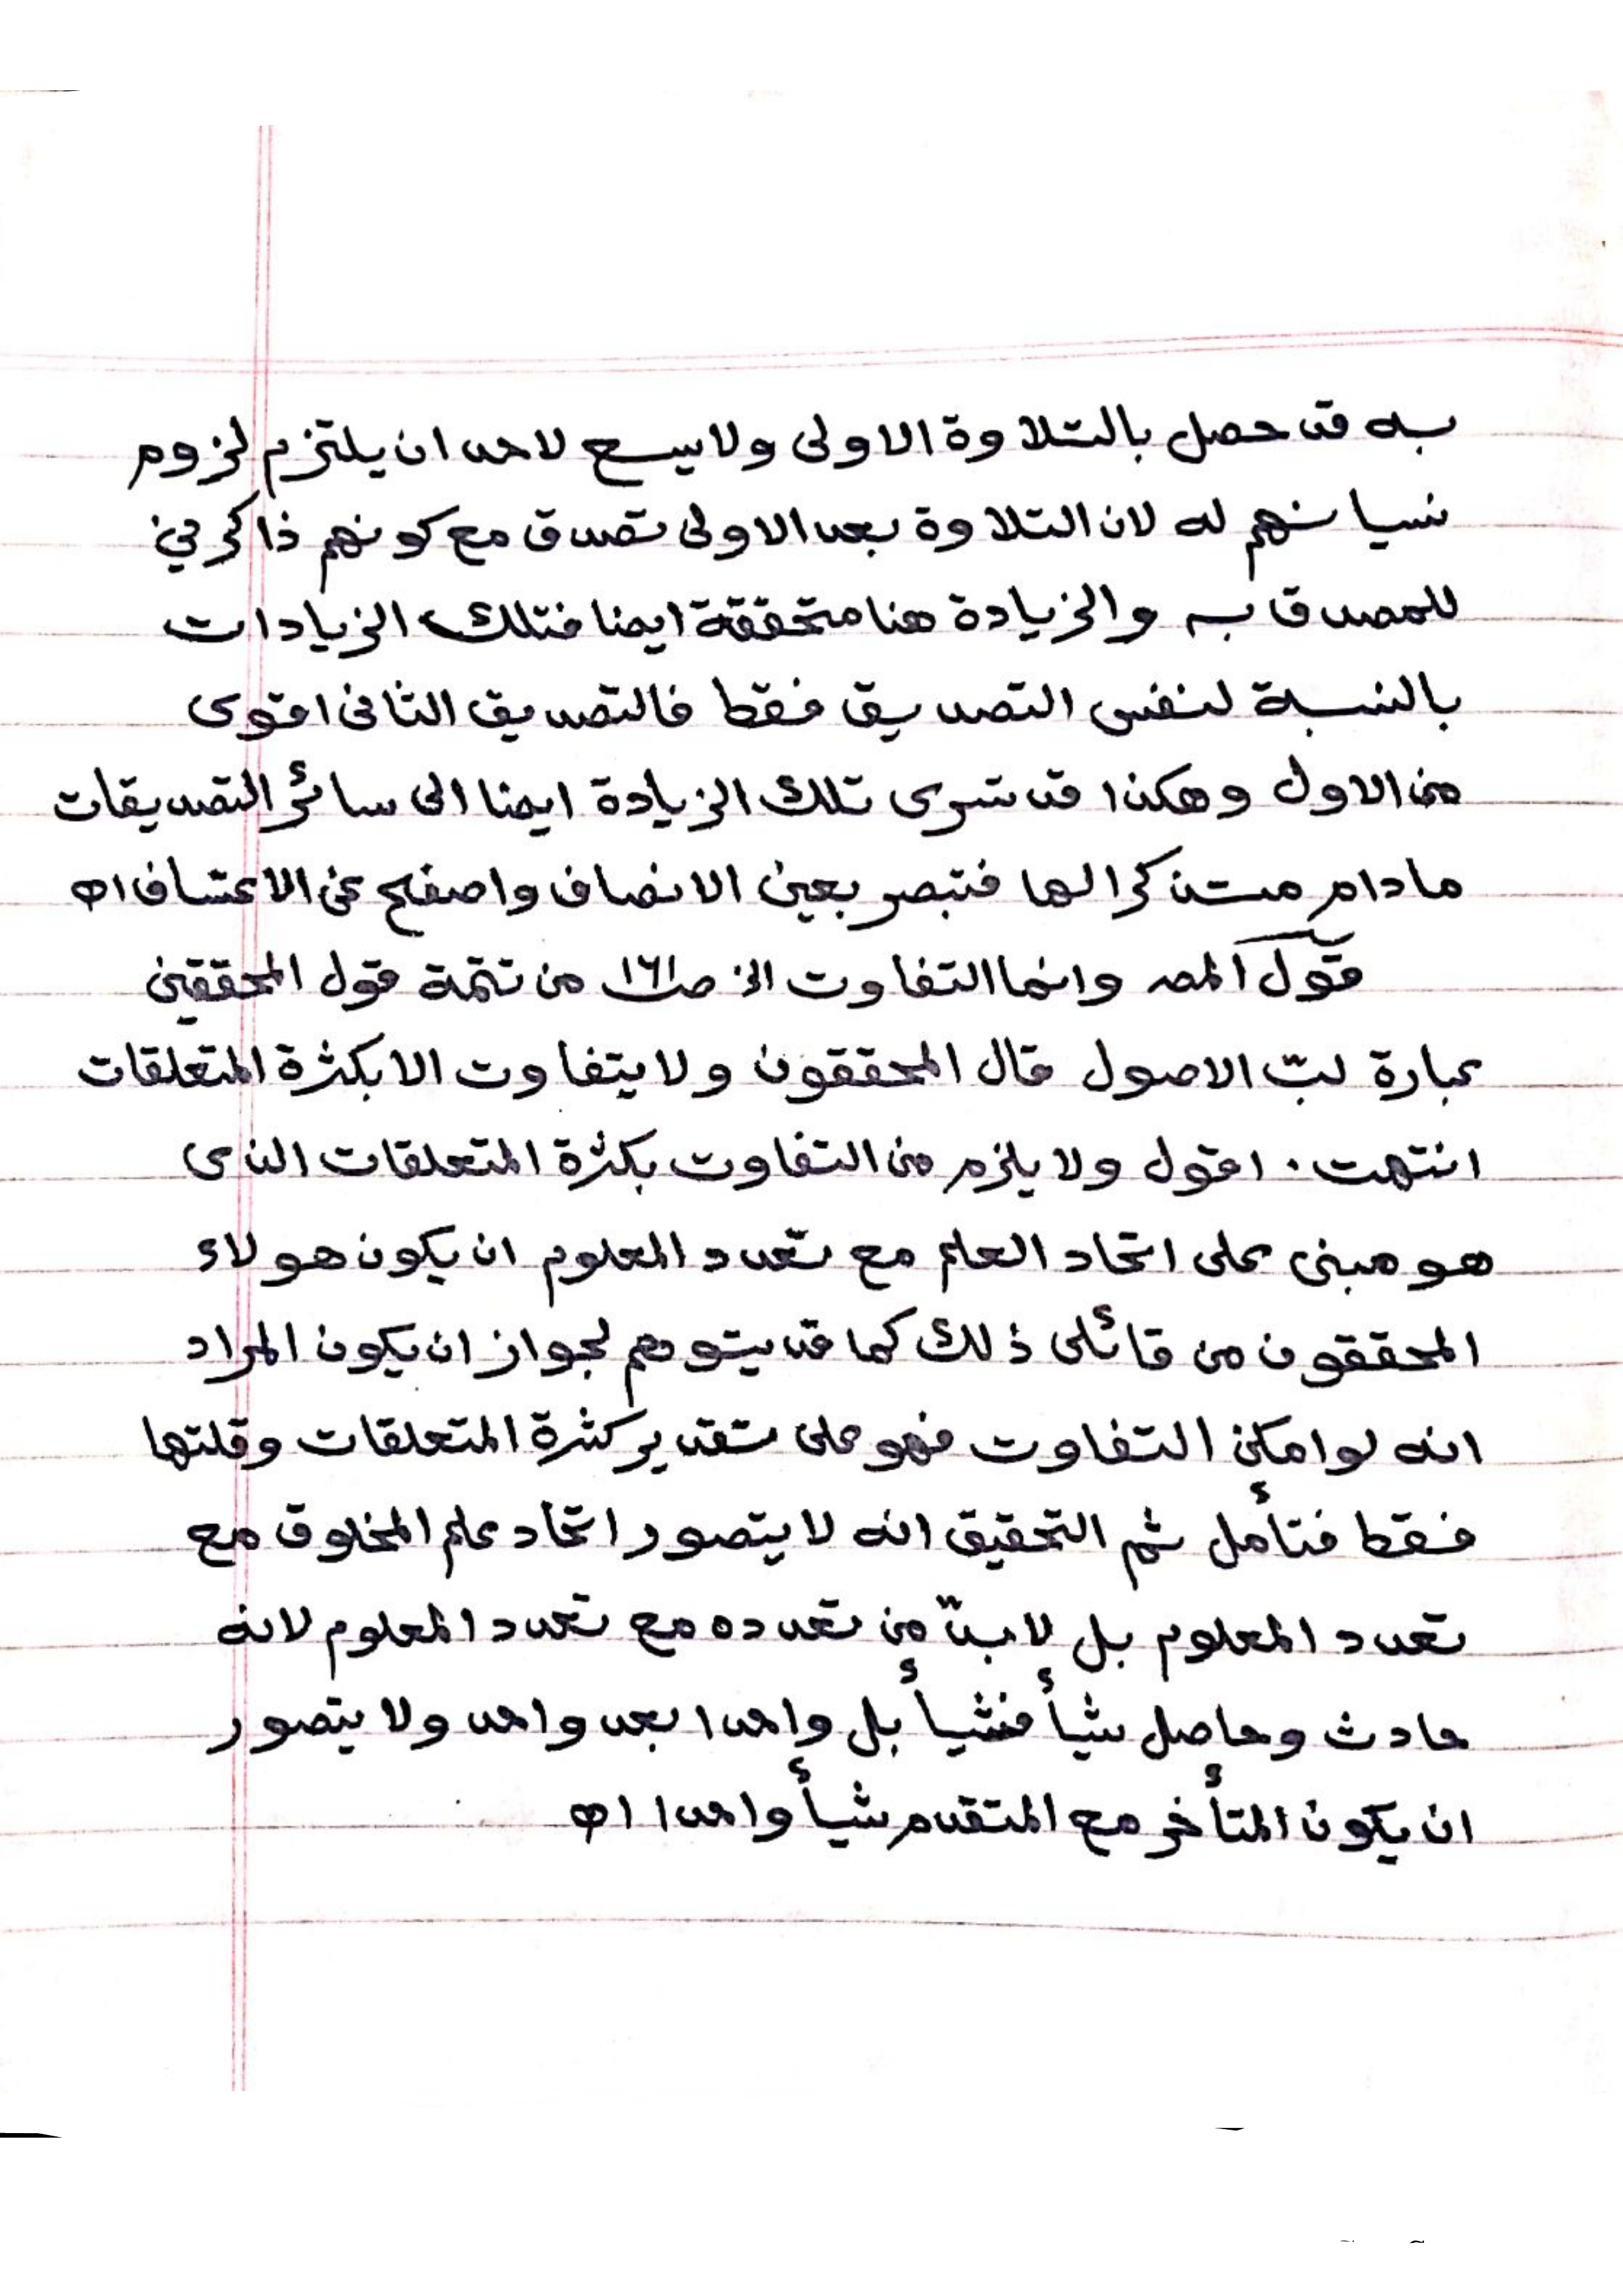 به قد حصل بالتلاوة الاولى ولا يسع لاحد ان يلتزم لزوم
نسيانهم له لان التلاوة بعد الاولى تصدق مع كونهم ذاكرين
للمصدق به والزيادة هنا متحققة ايضا فتلك الزيادات
بالنسبة لنفس التصديق فقط فالتصديق الثانى اقوى
من الاول وهكذا قد تسرى تلك الزيادة ايضا الى سائر التصديقات
مادام مستذكرا لها فتبصر بعين الانصاف واصفح عن الاعتساف اه
قول المص وانما التفاوت الخ صـ١٦١ من تتمة قول المحققين
عبارة لبّ الاصول قال المحققون ولا يتفاوت الا بكثرة المتعلقات
انتهت . اقول ولا يلزم من التفاوت بكثرة المتعلقات الذى
هو مبنى على اتحاد العلم مع تعدد المعلوم ان يكون هولاء
المحققون من قائلى ذلك كما قد يتوهم لجواز ان يكون المراد
انه لو امكن التفاوت فهو على تقدير كثرة المتعلقات وقلتها
فقط فتأمل ثم التحقيق انه لا يتصور اتحاد علم المخلوق مع
تعدد المعلوم بل لابدّ من تعدده مع تعدد المعلوم لانه
حادث وحاصل شيأ فشيأ بل واحدا بعد واحد ولا يتصور
ان يكون المتأخر مع المتقدم شيأ واحدا اه